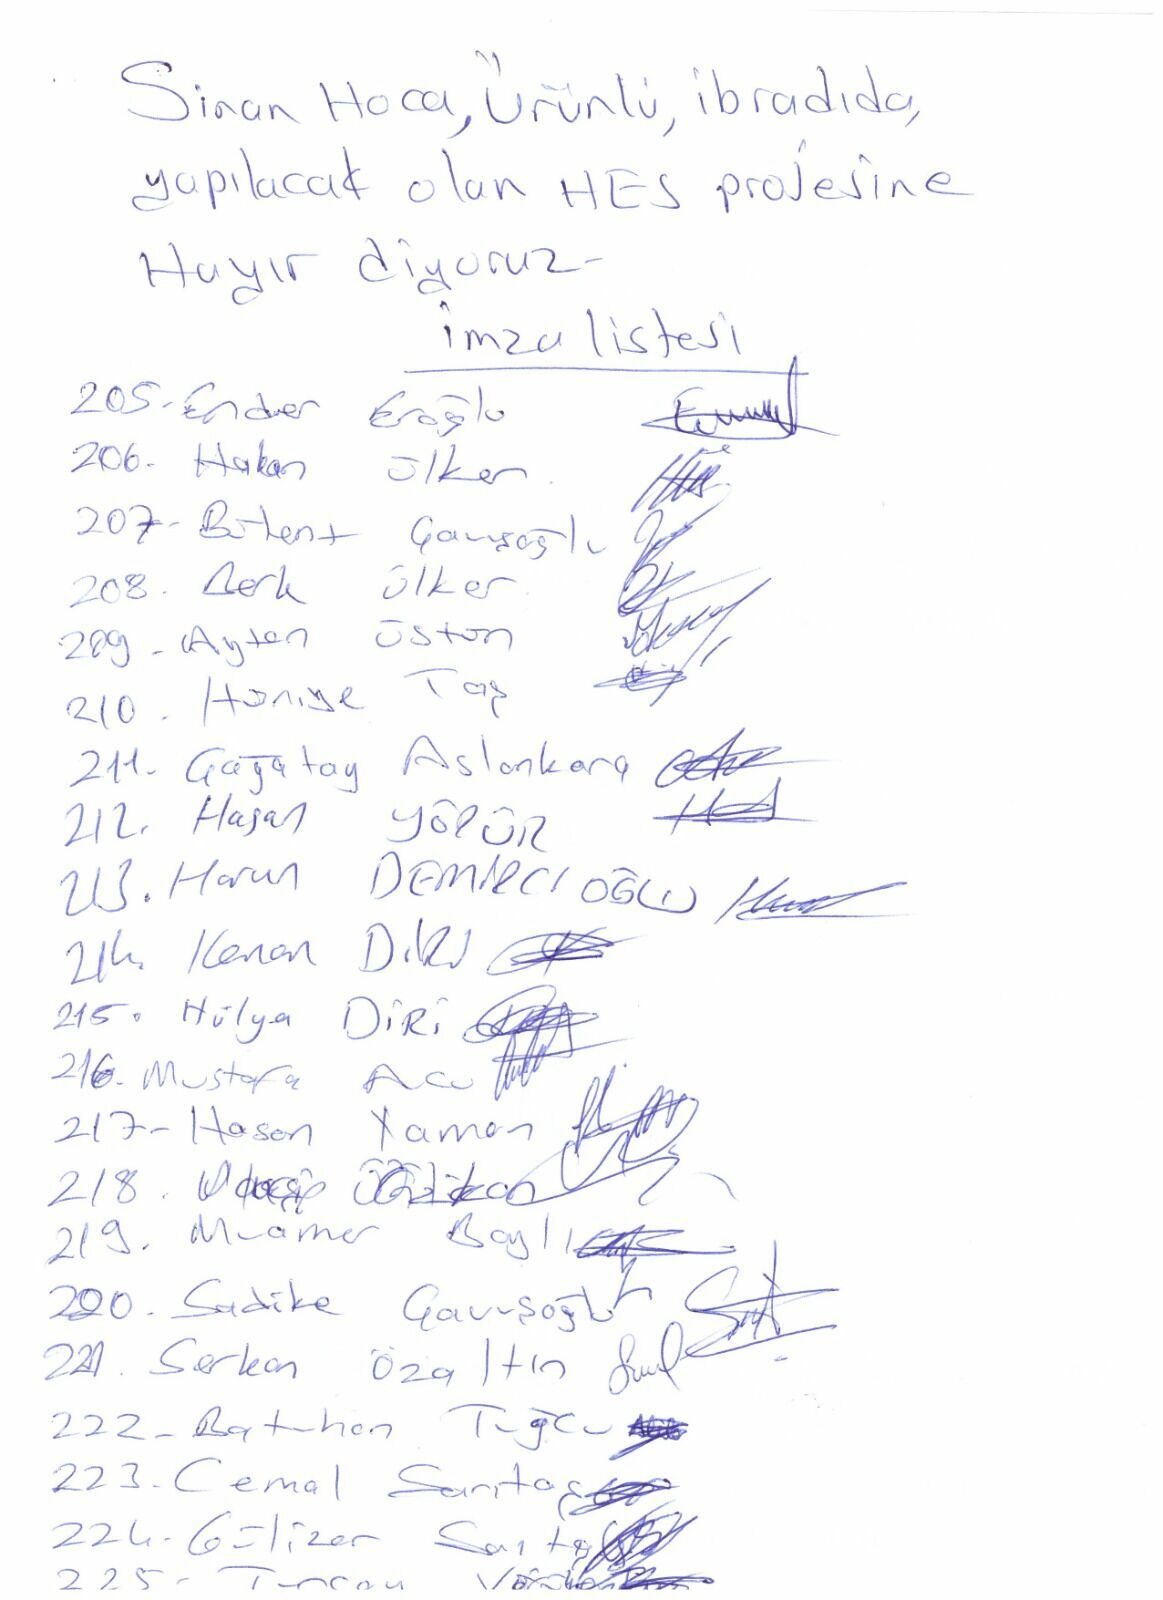 Sinan Hoca, Ürünlü, ibradıda,
yapılacak olan HES projesine
Hayır diyoruz-
imza listesi
205- Ender Eroğlu
206- Hakan Ülker
207- Bülent Çavuşoğlu
208. Berk Ülker
209- Ayten Üstün
210. Hüriye Taş
211- Çağatay Aslankara
212. Hasan
213. Harun DEMİRCİOĞLU
214. Kenan DİRİ
215. Hülya DİRİ
216. Mustafa Acu
217- Hasan Yaman
218.
219. Muamer Baylı
220. Sadike Çavuşoğlu
221. Serkan Özaltın
222- Batuhan Tuğcu
223- Cemal Sarıtaş
224- Gülizer Sarıtaş
225- Turcan